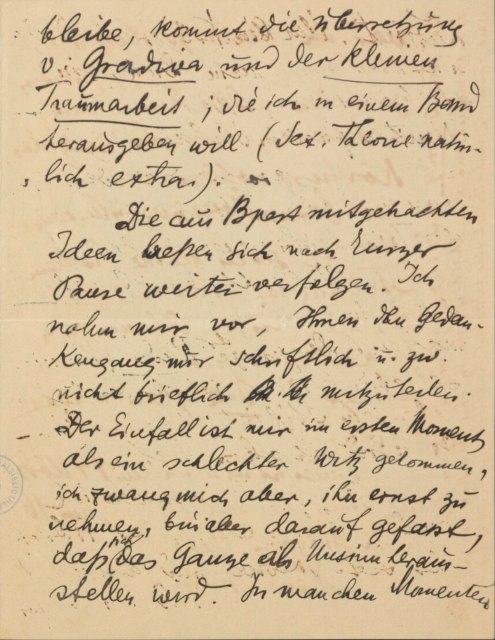 bleibe, kommt die Übersetzung
v. Gradiva und der kleinen
Traumarbeit, die ich in einem Band
herausgeben will (Sex. Theorie natür-
lich extra).
Die aus Bpest mitgebrachten
Ideen ließen sich nach kurzer
Pause weiter verfolgen. Ich
nahm mir vor, Ihnen den Gedan-
kengang nur schriftlich u. zw.
nicht brieflich mitzuteilen.
Der Einfall ist mir im ersten Moment
als ein schlechter Witz gekommen,
ich zwang mich aber, ihn ernst zu
nehmen, bin aber darauf gefasst,
daß sich das Ganze als Unsinn heraus-
stellen wird. In manchen Momenten